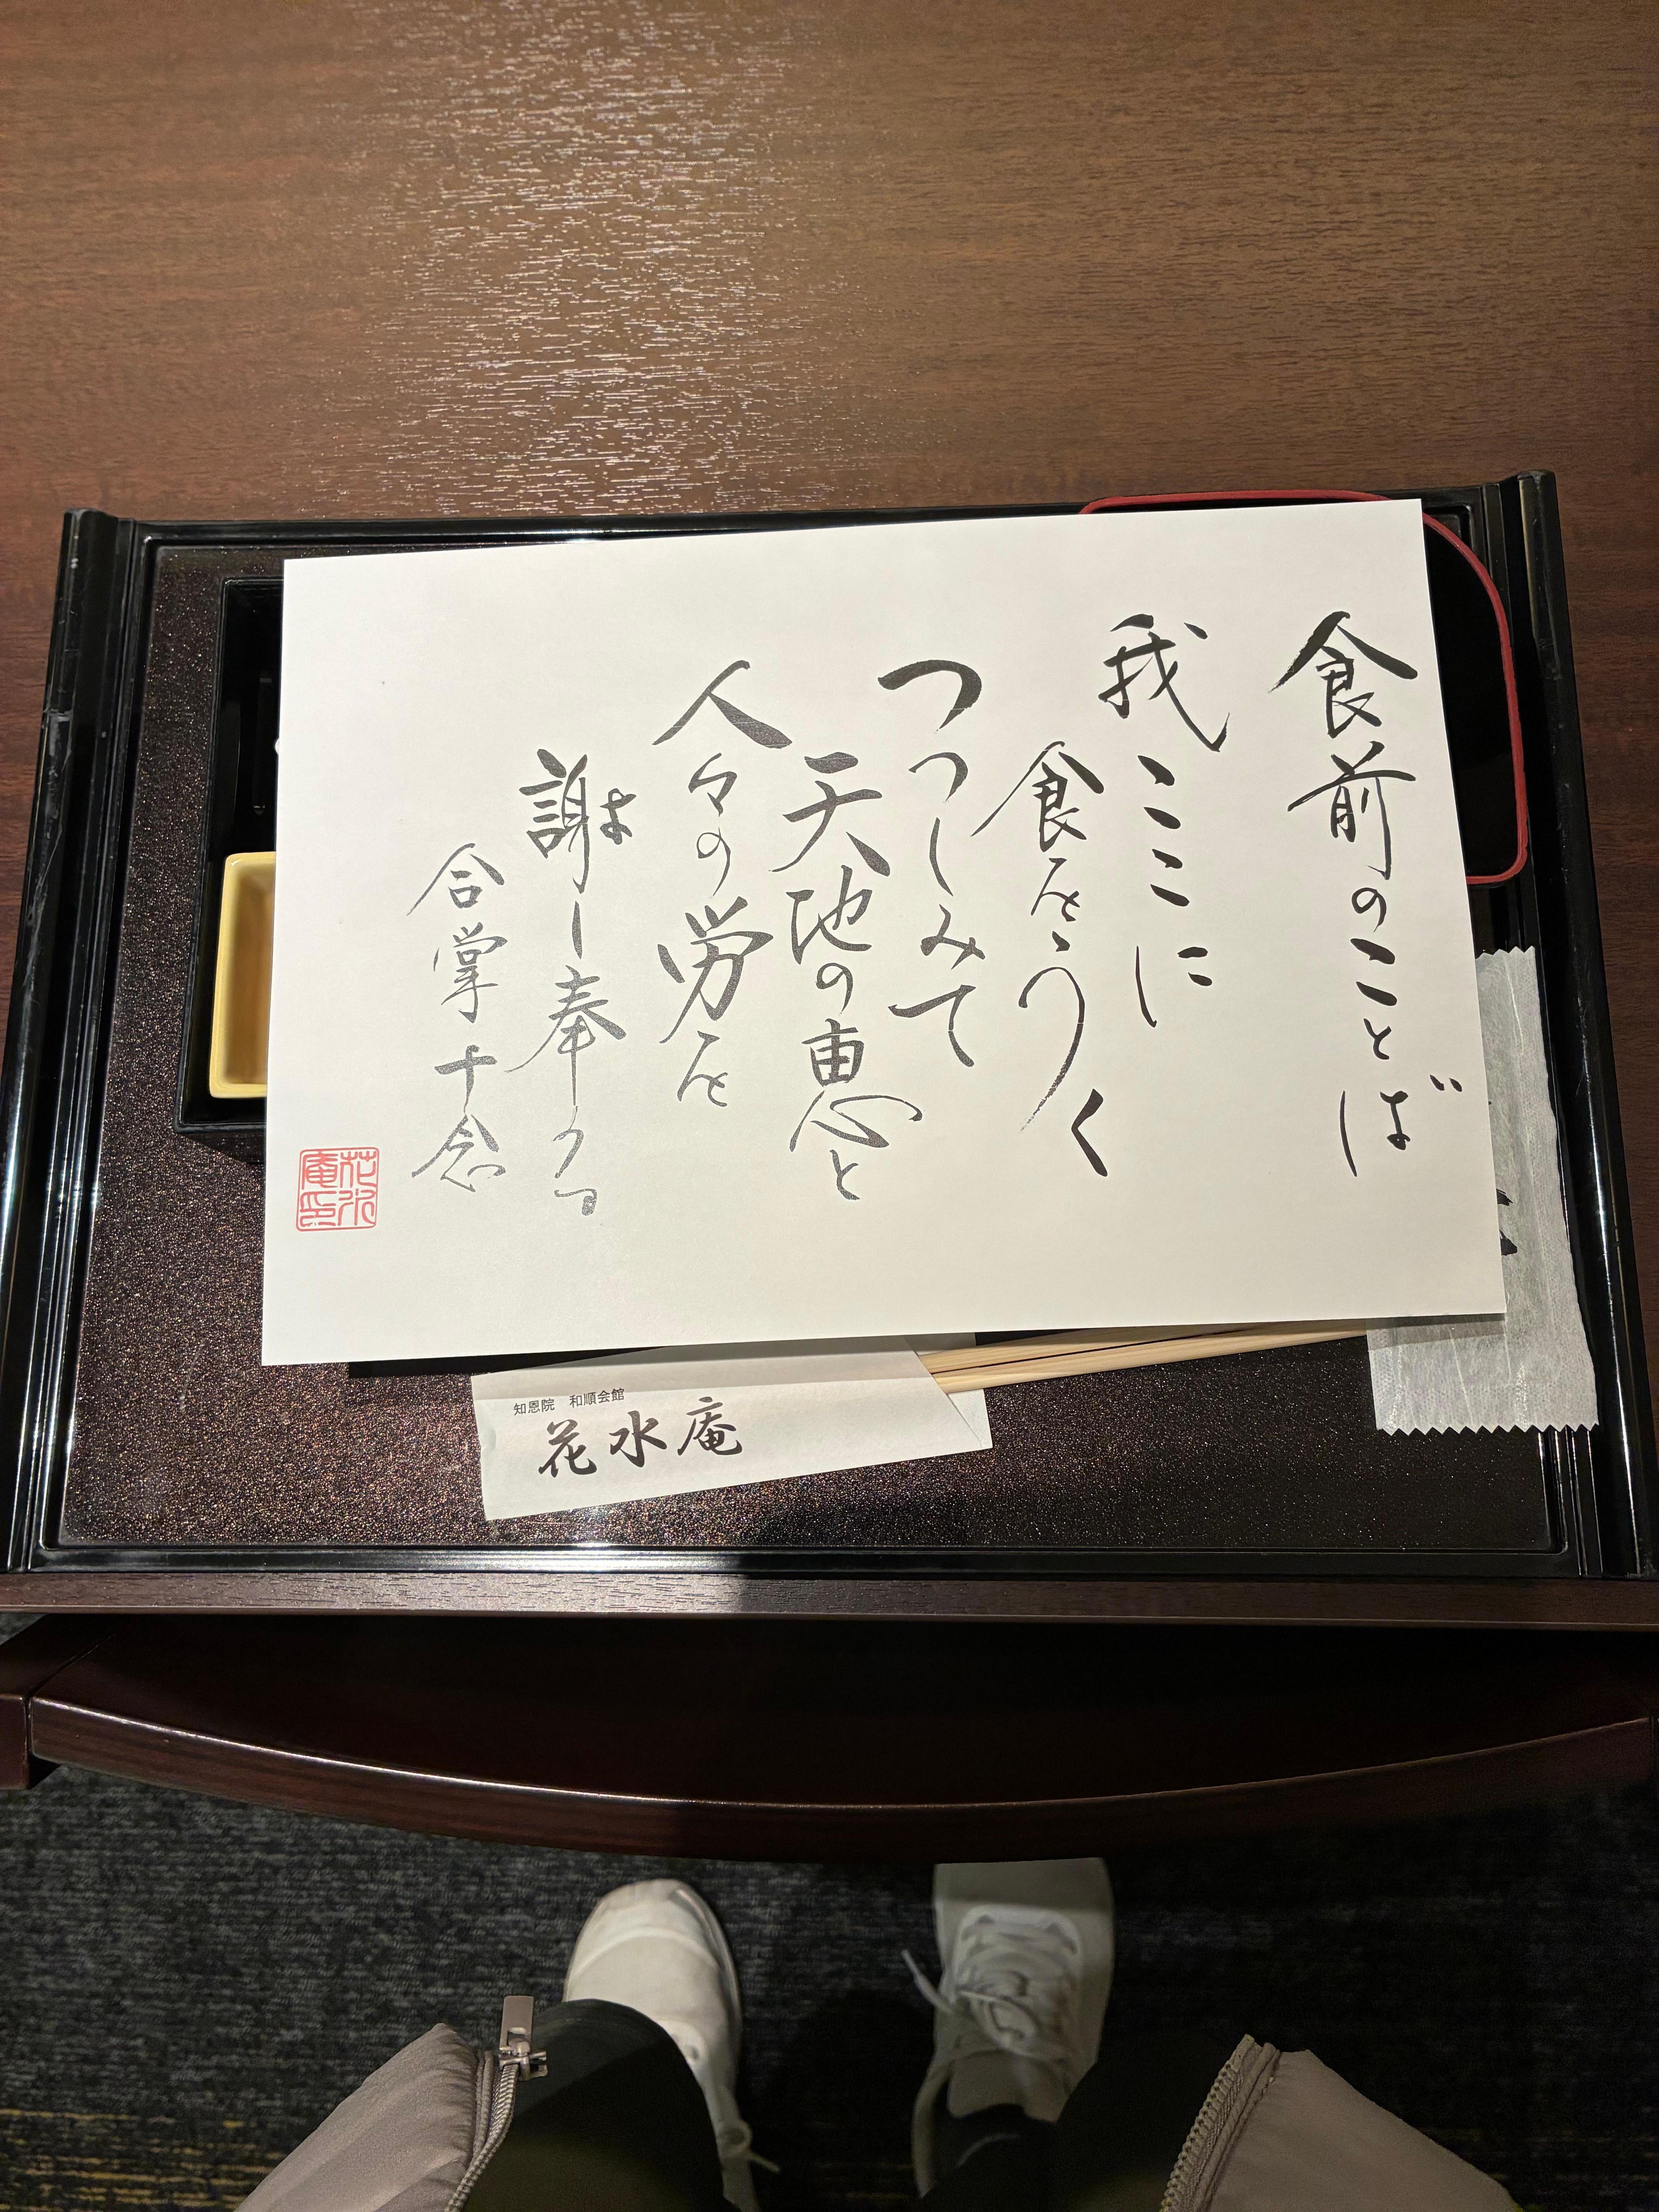 食前のことば
我ここに
食をうく
つつしみて
天地の恵と
人々の労を
謝し奉る
合掌十念
花水庵印
知恩院 和順会館
花水庵